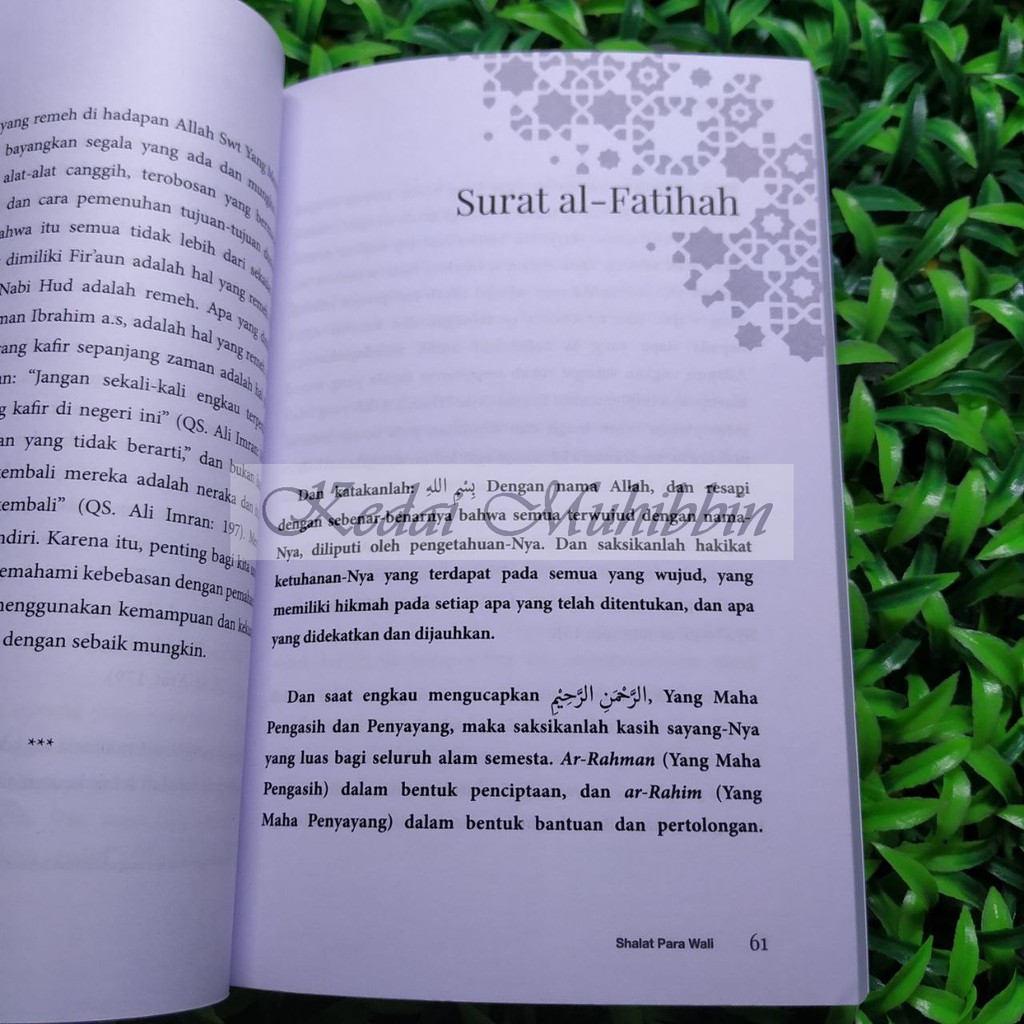 yang remeh di hadapan Allah Swt Yang
bayangkan segala yang ada dan
alat-alat canggih, terobosan yang
dan cara pemenuhan tujuan-tujuan
itu semua tidak lebih dari
dimiliki Fir'aun adalah hal yang remeh.
Nabi Hud adalah remeh. Apa yang
Ibrahim a.s, adalah hal yang remeh.
kafir sepanjang zaman adalah hal
"Jangan sekali-kali engkau
kafir di negeri ini" (QS. Ali Imran:
yang tidak berarti," dan bukan
mereka adalah neraka dan
(QS. Ali Imran: 197).
Karena itu, penting bagi kita
kebebasan dengan
kemampuan dan
dengan sebaik mungkin.
***
Surat al-Fatihah
Dan katakanlah, بِسْمِ اللهِ Dengan nama Allah, dan resapi
dengan sebenar-benarnya bahwa semua terwujud dengan nama-
Nya, diliputi oleh pengetahuan-Nya. Dan saksikanlah hakikat
ketuhanan-Nya yang terdapat pada semua yang wujud, yang
memiliki hikmah pada setiap apa yang telah ditentukan, dan apa
yang didekatkan dan dijauhkan.
Dan saat engkau mengucapkan الرَّحْمَنِ الرَّحِيْمِ, Yang Maha
Pengasih dan Penyayang, maka saksikanlah kasih sayang-Nya
yang luas bagi seluruh alam semesta. Ar-Rahman (Yang Maha
Pengasih) dalam bentuk penciptaan, dan ar-Rahim (Yang
Maha Penyayang) dalam bentuk bantuan dan pertolongan.
Shalat Para Wali 61
Kedai Muhibbin